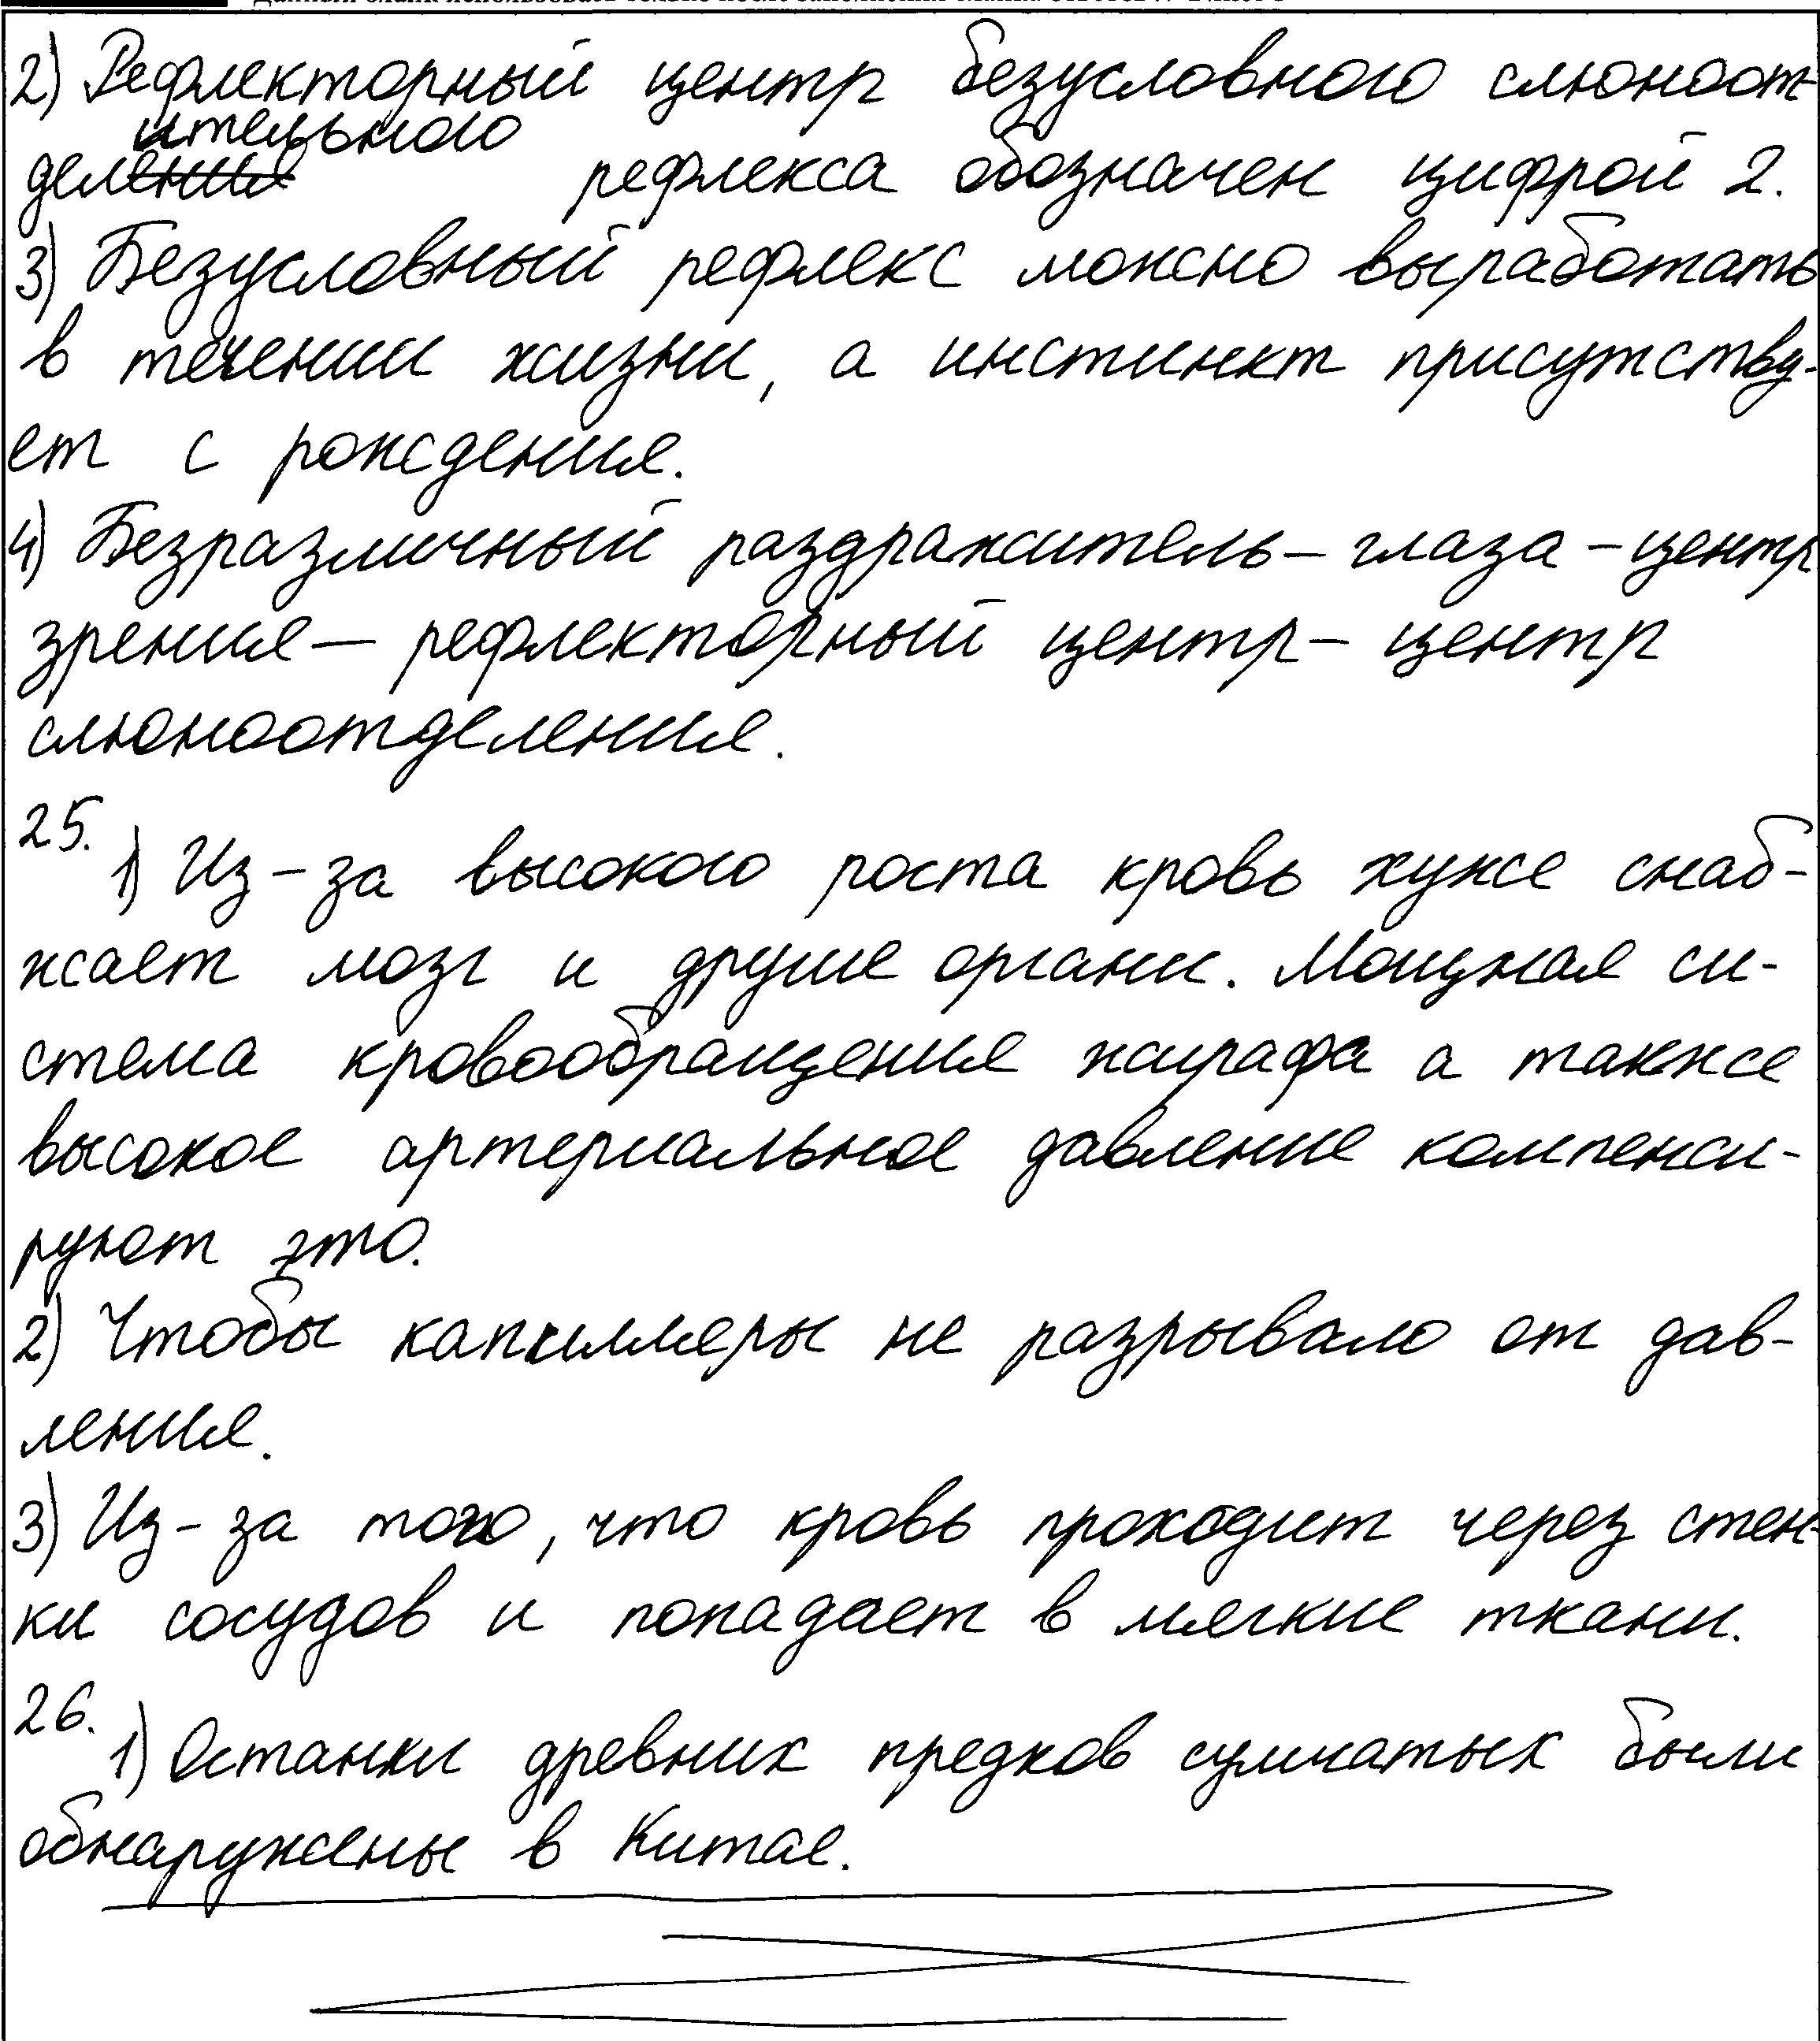 2) Рефлекторный центр безусловного слюноот
ительного
деления рефлекса обозначен цифрой 2.
3) Безусловный рефлекс можно выработать
в течении жизни, а инстинкт присутству-
ет с рождения.
4) Безразличный раздражитель – глаза – центр
зрения – рефлекторный центр – центр
слюноотделения.
25.
1) Из-за высокого роста кровь хуже снаб-
жает мозг и другие органи. Мощная си-
стема кровообращения жирафа а также
высокое артериальное давление компенси-
руют это.
2) Чтобы капилляры не разрывало от дав-
ления.
3) Из-за того, что кровь проходит через стен-
ки сосудов и попадает в мягкие ткани.
26.
1) Останки древних предков сумчатых были
обнаружены в Китае.